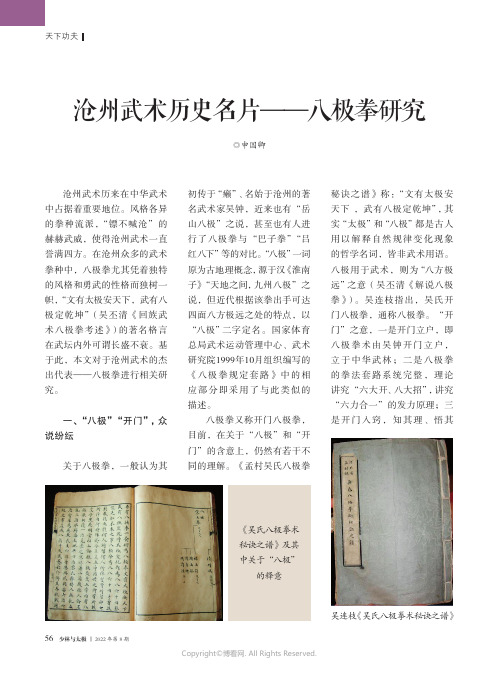 天下功夫
沧州武术历史名片——八极拳研究
◎申国卿
沧州武术历来在中华武术
中占据着重要地位。风格各异
的拳种流派，“镖不喊沧”的
赫赫武威，使得沧州武术一直
誉满四方。在沧州众多的武术
拳种中，八极拳尤其凭着独特
的风格和勇武的性格而独树一
帜，“文有太极安天下，武有八
极定乾坤”（吴丕清《回族武
术八极拳考述》）的著名格言
在武坛内外可谓长盛不衰。基
于此，本文对于沧州武术的杰
出代表——八极拳进行相关研
究。
一、“八极”“开门”，众
说纷纭
关于八极拳，一般认为其
初传于“癞”、名始于沧州的著
名武术家吴钟，近来也有“岳
山八极”之说，甚至也有人进
行了八极拳与“巴子拳”“吕
红八下”等的对比。“八极”一词
原为古地理概念，源于汉《淮南
子》“天地之间，九州八极”之
说，但近代根据该拳出手可达
四面八方极远之处的特点，以
“八极”二字定名。国家体育
总局武术运动管理中心、武术
研究院1999年10月组织编写的
《八极拳规定套路》中的相
应部分即采用了与此类似的
描述。
八极拳又称开门八极拳，
目前，在关于“八极”和“开
门”的含意上，仍然有若干不
同的理解。《孟村吴氏八极拳
秘诀之谱》称：“文有太极安
天下，武有八极定乾坤”，其
实“太极”和“八极”都是古人
用以解释自然规律变化现象
的哲学名词，皆非武术用语。
八极用于武术，则为“八方极
远”之意（吴丕清《解说八极
拳》）。吴连枝指出，吴氏开
门八极拳，通称八极拳。“开
门”之意，一是开门立户，即
八极拳术由吴钟开门立户，
立于中华武林；二是八极拳
的拳法套路系统完整，理论
讲究“六大开、八大招”，讲究
“六力合一”的发力原理；三
是开门入窍，知其理、悟其
《吴氏八极拳术
秘诀之谱》及其
中关于“八极”
的释意
吴连枝《吴氏八极拳术秘诀之谱》
56 少林与太极 | 2022年第8期
Copyright©博看网. All Rights Reserved.